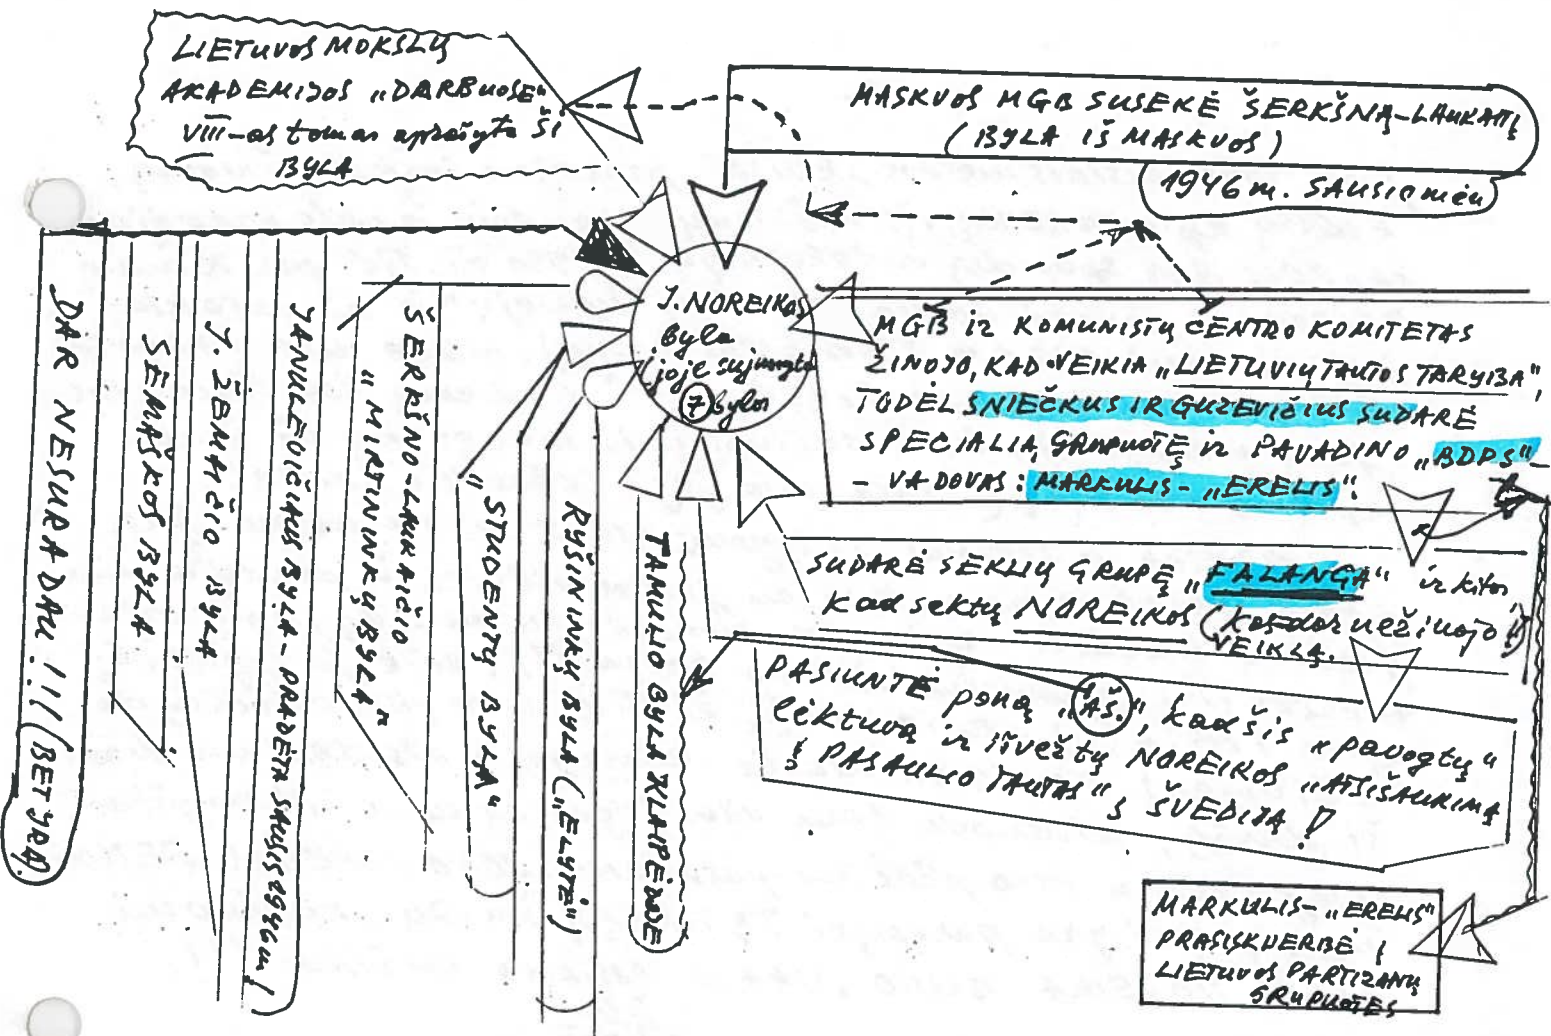 LIETUVOS MOKSLŲ
AKADEMIJOS „DARBUOSE"
VIII-as tomas aprašyta ši
BYLA
MASKVOS MGB SUSEKĖ ŠERKŠNĄ-LAUKAITĮ
(BYLA IŠ MASKVOS)
1946 m. SAUSIO mėn
J. NOREIKOS
byla
(joje sujungta
7 bylos
MGB ir KOMUNISTŲ CENTRO KOMITETAS
ŽINOJO, KAD VEIKIA „LIETUVIŲ TAUTOS TARYBA",
TODĖL SNIEČKUS IR GUZEVIČIUS SUDARĖ
SPECIALIĄ GRUPUOTĘ ir PAVADINO „BDPS"-
- VADOVAS: MARKULIS- „ERELIS".
SUDARĖ SEKLIŲ GRUPĘ „FALANGA" ir kitos,
kad sektų NOREIKOS (kas dar nežinojo!)
VEIKLĄ.
PASIUNTĖ poną „A.Š.", kad šis „pavogtų"
lėktuvą ir išvežtų NOREIKOS „ATSIŠAUKIMĄ
Į PASAULIO TAUTAS" Į ŠVEDIJĄ!
MARKULIS- „ERELIS"
PRASISKVERBĖ Į
LIETUVOS PARTIZANŲ
GRUPUOTES
DAR NESURADAU!!! (BET YRA).
SĖMAŠKOS BYLA
J. ŽEMAIČIO BYLA
JANULEVIČIAUS BYLA - PRADĖTA SAUSIS 1946 m!
ŠERKŠNO LAUKAIČIO
„MIRTININKŲ BYLA"
„STUDENTŲ BYLA"
RYŠININKŲ BYLA („ELYTĖ")
TAMULIO BYLA KLAIPĖDOJE